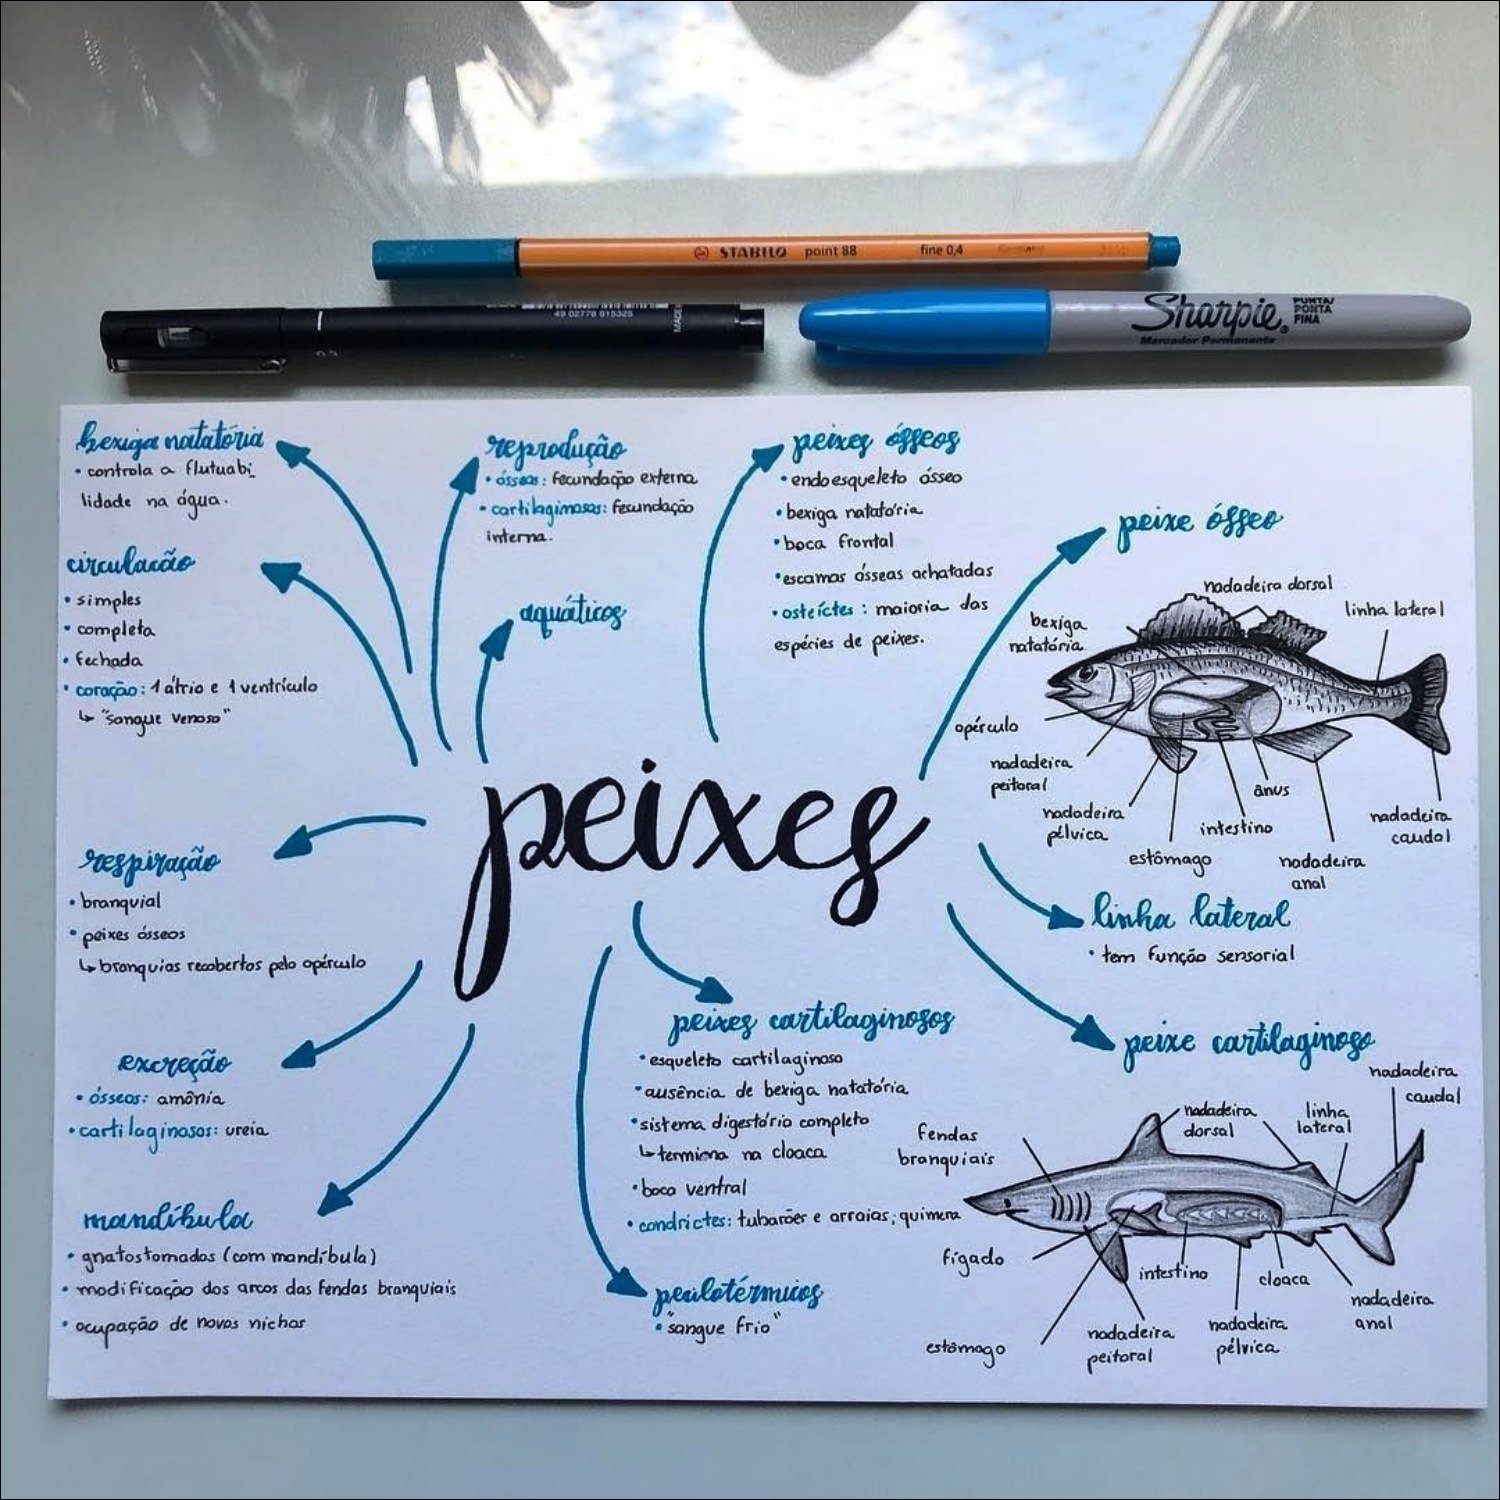 STABILO point 88 fine 0,4
49 02778 915325
MADE
Sharpie®
PUNTA/
PONTA
FINA
Marcador Permanente
bexiga natatória
• controla a flutuabi_
lidade na água.
circulacão
• simples
• completa
• fechada
• coração: 1 átrio e 1 ventrículo
↳ "sangue venoso"
reprodução
• ósseos: fecundação externa
• cartilaginosos: fecundação
interna.
aquáticos
peixes ósseos
• endoesqueleto ósseo
• bexiga natatória
• boca frontal
• escamas ósseas achatadas
• osteíctes: maioria das
espécies de peixes.
peixe ósseo
nadadeira dorsal
linha lateral
bexiga
natatória
opérculo
nadadeira
peitoral
nadadeira
pélvica
estômago
intestino
ânus
nadadeira
anal
nadadeira
caudal
peixes
respiração
• branquial
• peixes ósseos
↳ branquias recobertos pelo opérculo
linha lateral
• tem função sensorial
excreção
• ósseos: amônia
• cartilaginosos: ureia
mandíbula
• gnatostomados (com mandíbula)
• modificação dos arcos das fendas branquiais
• ocupação de novos nichos
peixes cartilaginosos
• esqueleto cartilaginoso
• ausência de bexiga natatória
• sistema digestório completo
↳ termina na cloaca
• boca ventral
• condrictes: tubarões e arraias, quimera
pecilotérmicos
• "sangue frio"
peixe cartilaginoso
nadadeira
caudal
nadadeira
dorsal
linha
lateral
fendas
branquiais
fígado
estômago
intestino
cloaca
nadadeira
peitoral
nadadeira
pélvica
nadadeira
anal